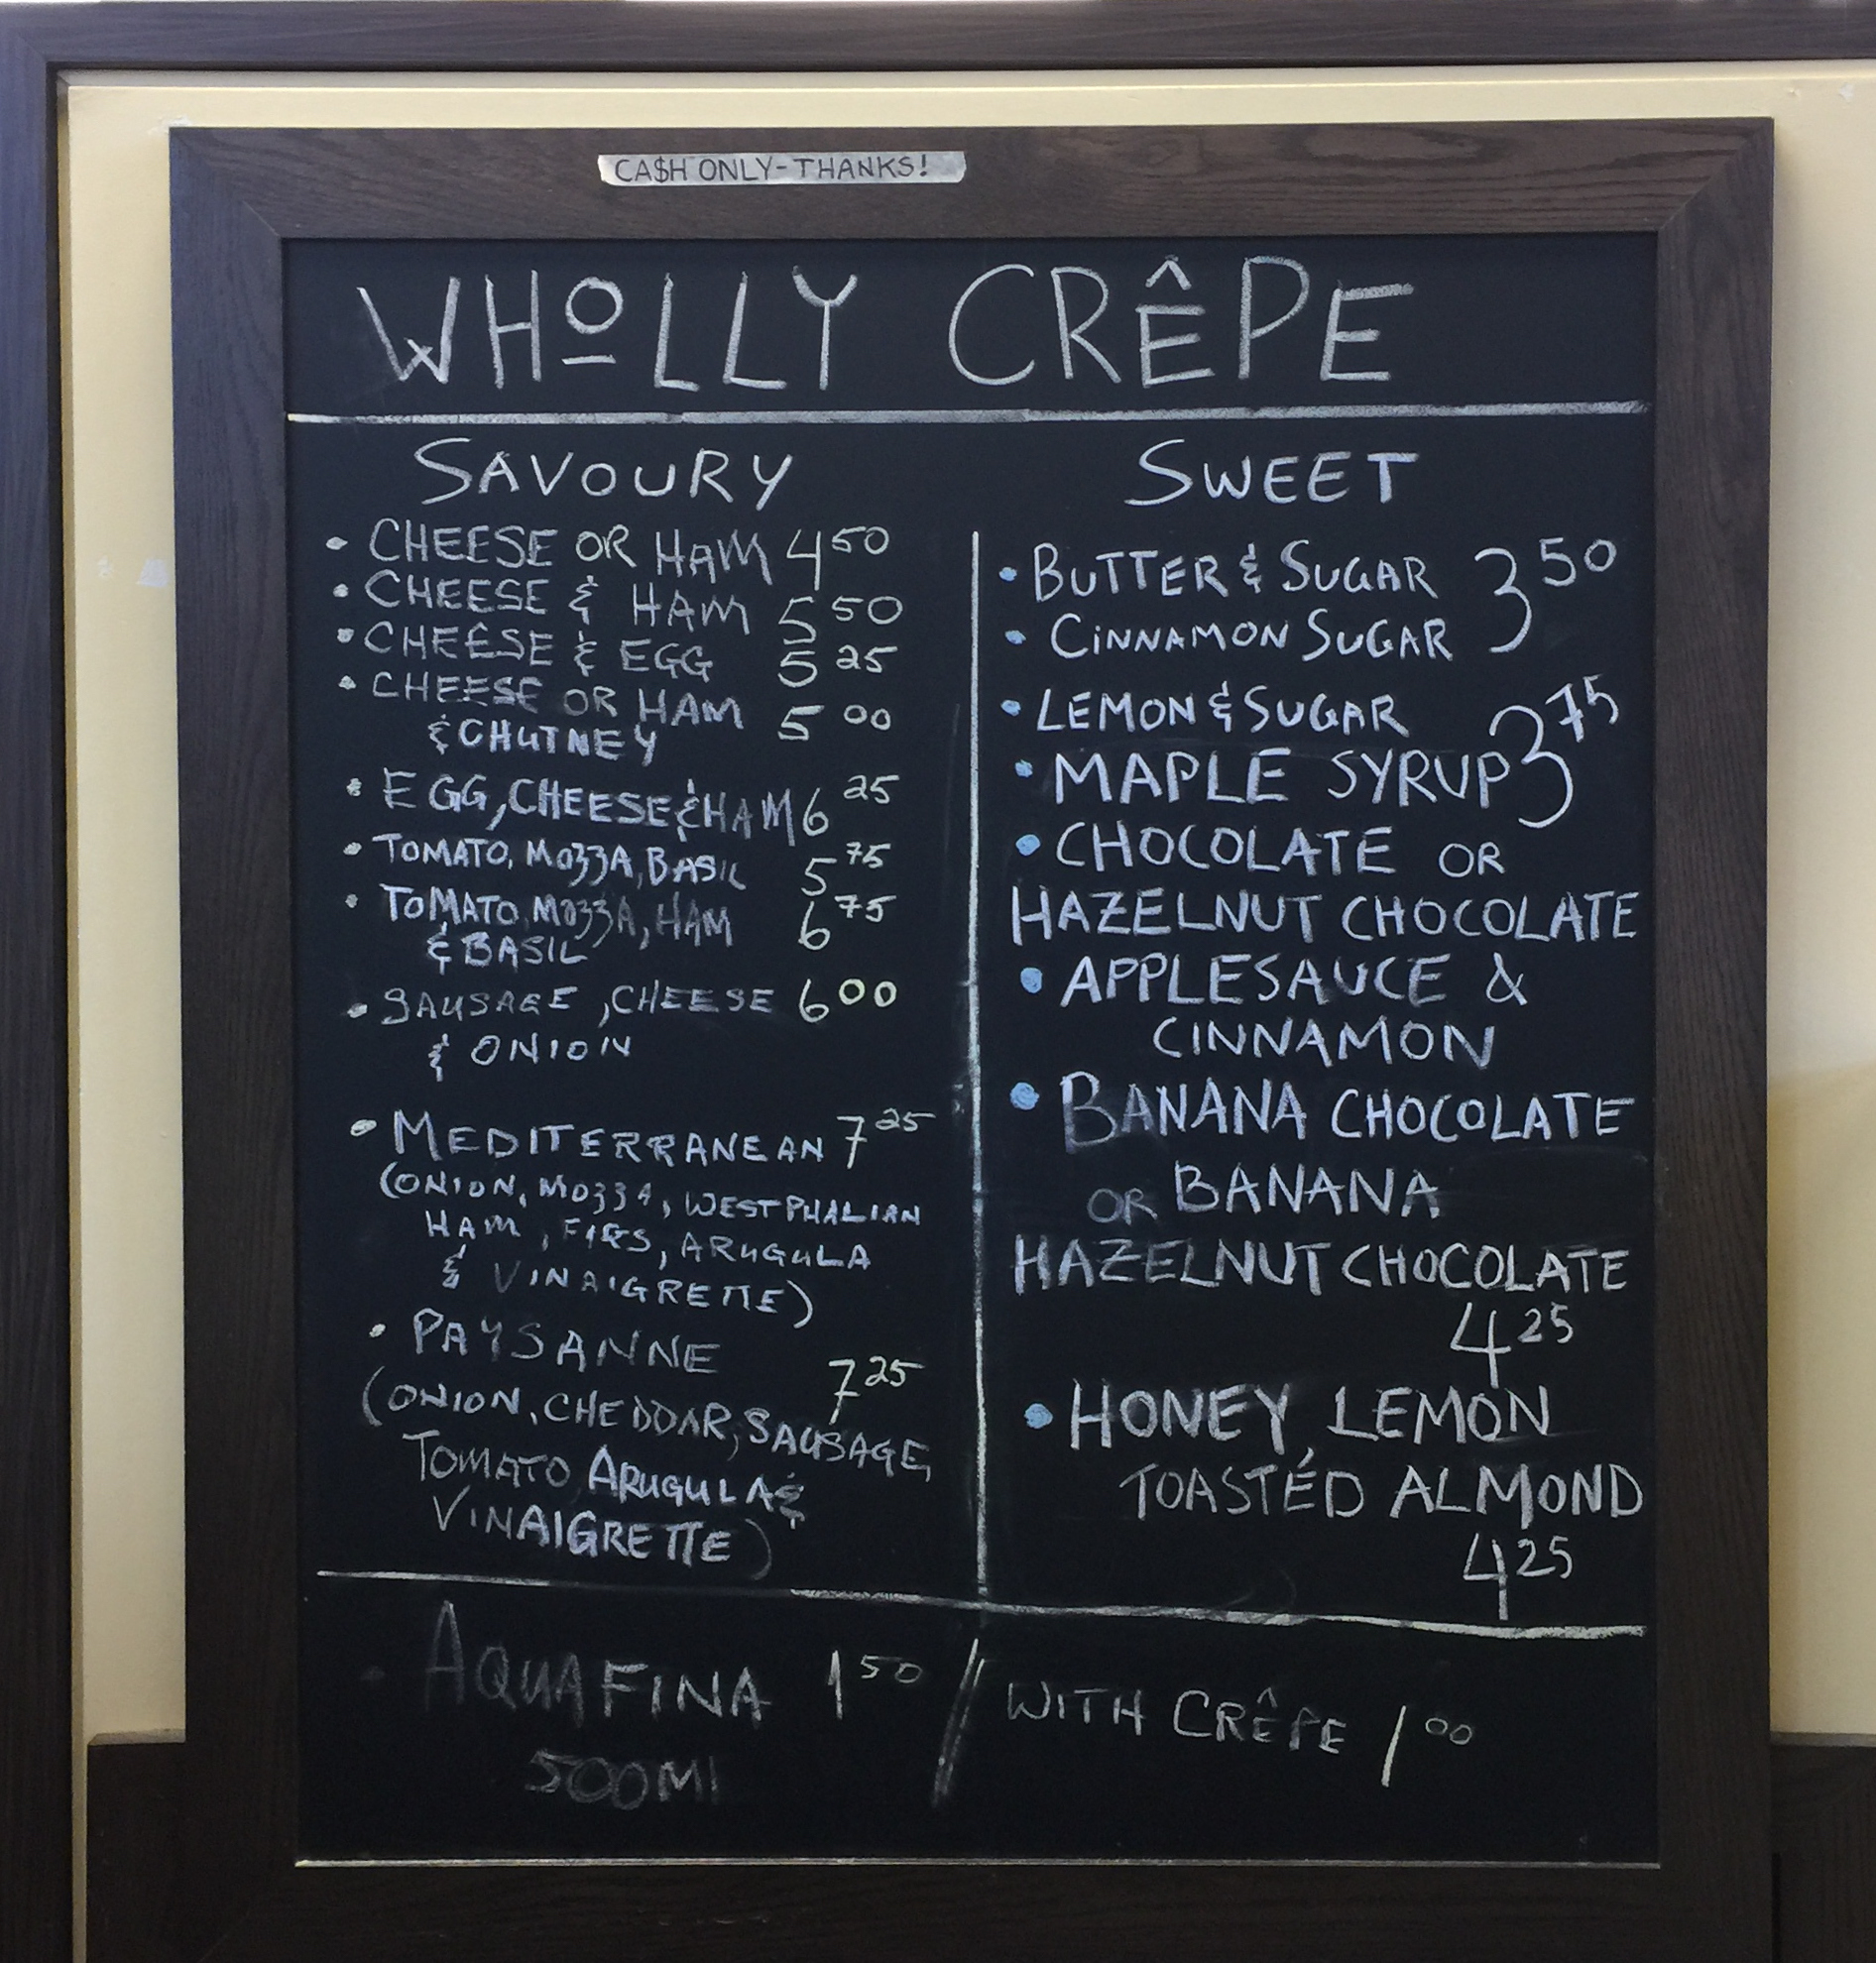 CA$H ONLY-THANKS!
WHOLLY CRÊPE
SAVOURY
• CHEESE OR HAM 4 50
• CHEESE & HAM 5 50
• CHEESE & EGG 5 25
• CHEESE OR HAM 5 00
& CHUTNEY
• EGG, CHEESE & HAM 6 25
• TOMATO, MOZZA, BASIL 5 75
• TOMATO, MOZZA, HAM 6 75
& BASIL
• SAUSAGE, CHEESE 6 00
& ONION
• MEDITERRANEAN 7 25
(ONION, MOZZA, WESTPHALIAN
HAM, FIGS, ARUGULA
& VINAIGRETTE)
• PAYSANNE
7 25
(ONION, CHEDDAR, SAUSAGE,
TOMATO, ARUGULA &
VINAIGRETTE)
SWEET
• BUTTER & SUGAR 3 50
• CINNAMON SUGAR
• LEMON & SUGAR 3 75
• MAPLE SYRUP
• CHOCOLATE OR
HAZELNUT CHOCOLATE
• APPLESAUCE &
CINNAMON
• BANANA CHOCOLATE
OR BANANA
HAZELNUT CHOCOLATE
4 25
• HONEY, LEMON
TOASTED ALMOND
4 25
AQUAFINA 1 50 / WITH CRÊPE 1 00
500Ml